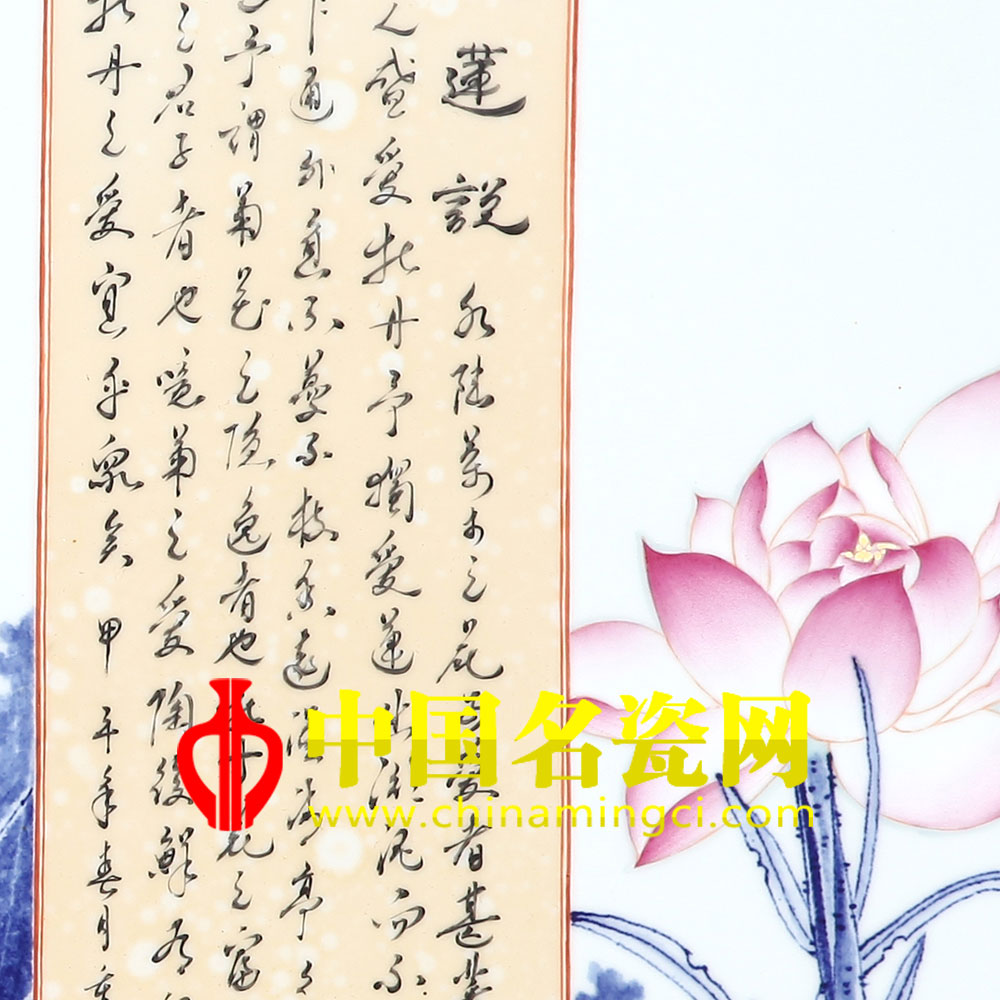 蓮說 水陸草木之花可愛者甚蕃
人盛愛牡丹予獨愛蓮出淤泥而不
中通外直不蔓不枝香遠益清亭
予謂菊花之隱逸者也牡丹花之富
之君子者也噫菊之愛陶後鮮有
牡丹之愛宜乎眾矣 甲午年春月
中国名瓷网
www.chinamingci.com